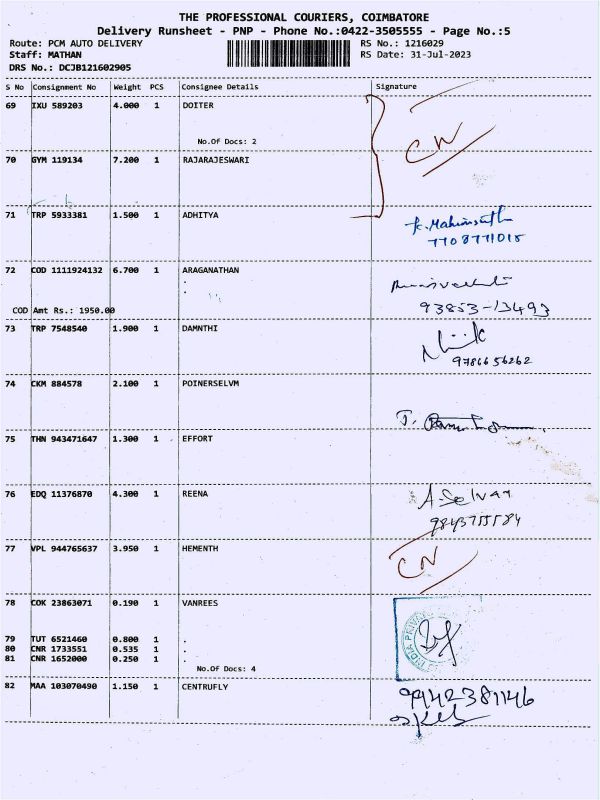 THE PROFESSIONAL COURIERS, COIMBATORE
Delivery Runsheet - PNP - Phone No.:0422-3505555 - Page No.:5
Route: PCM AUTO DELIVERY RS No.: 1216029
Staff: MATHAN RS Date: 31-Jul-2023
DRS No.: DCJB121602905
S No Consignment No Weight PCS Consignee Details Signature
69 IXU 589203 4.000 1 DOITER
No.Of Docs: 2
CN
70 GYM 119134 7.200 1 RAJARAJESWARI
71 TRP 5933381 1.500 1 ADHITYA
7708771015
72 COD 1111924132 6.700 1 ARAGANATHAN
:
:
COD Amt Rs.: 1950.00 93853-13493
73 TRP 7548540 1.900 1 DAMNTHI
9786656262
74 CKM 884578 2.100 1 POINERSELVM
75 THN 943471647 1.300 1 EFFORT
76 EDQ 11376870 4.300 1 REENA
A. Selvan
77 VPL 944765637 3.950 1 HEMENTH
CN
78 COK 23863071 0.190 1 VANREES
79 TUT 6521460 0.800 1 .
80 CNR 1733551 0.535 1 .
81 CNR 1652000 0.250 1 .
No.Of Docs: 4
INDIA PRIVATE
82 MAA 103070490 1.150 1 CENTRUFLY
9942381146